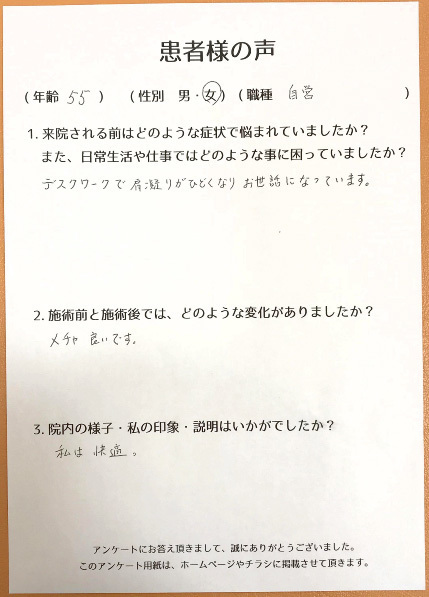 患者様の声
(年齢 55 ) (性別 男・女) (職種 自営 )
1. 来院される前はどのような症状で悩まれていましたか?
また、日常生活や仕事ではどのような事に困っていましたか?
デスクワークで肩凝りがひどくなりお世話になっています。
2. 施術前と施術後では、どのような変化がありましたか?
メチャ良いです。
3. 院内の様子・私の印象・説明はいかがでしたか?
私は快適。
アンケートにお答え頂きまして、誠にありがとうございました。
このアンケート用紙は、ホームページやチラシに掲載させて頂きます。